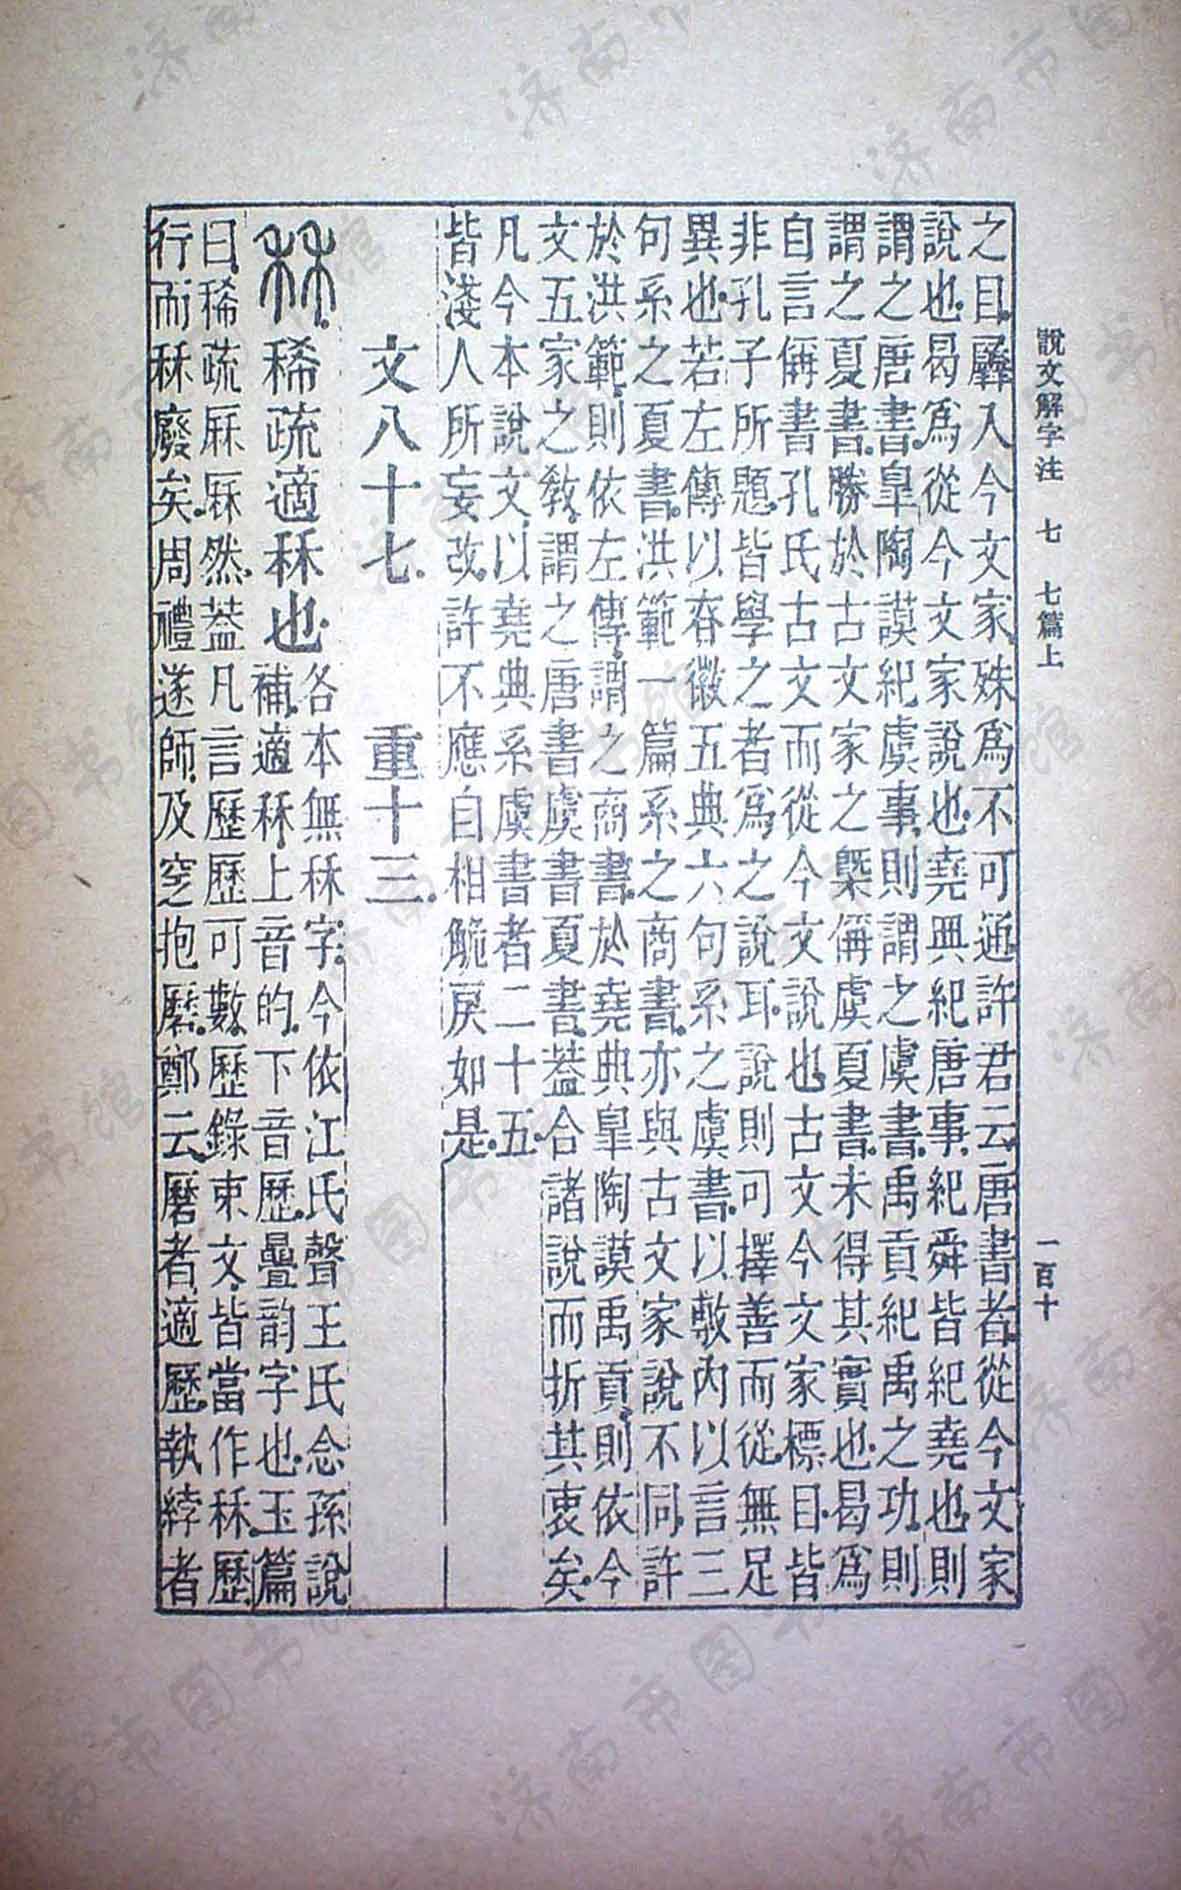 說文解字注　七　七篇上　一百十
之目羼入今文家殊爲不可通許君云唐書者從今文家
說也曷爲從今文家說也堯典紀唐事紀舜皆紀堯也則
謂之唐書皐陶謨紀虞事則謂之虞書禹貢紀禹之功則
謂之夏書勝於古文家之槩偁虞夏書未得其實也曷爲
自言偁書孔氏古文而從今文說也古文今文家標目皆
非孔子所題皆學之者爲之說耳說則可擇善而從無足
異也若左傳以眘徽五典六句系之虞書以敷內以言三
句系之夏書洪範一篇系之商書亦與古文家說不同許
於洪範則依左傳謂之商書於堯典皐陶謨禹貢則依今
文五家之敎謂之唐書虞書夏書葢合諸說而折其衷矣
凡今本說文以堯典系虞書者二十五
皆淺人所妄改許不應自相觤戾如是
文八十七　重十三
秝稀疏適秝也
各本無秝字今依江氏聲王氏念孫說
補適秝上音的下音歷曡韵字也玉篇
曰稀疏厤厤然葢凡言歷歷可數歷錄束文皆當作秝歷
行而秝廢矣周禮遂師及窆抱磿鄭云磿者適歷執綍者